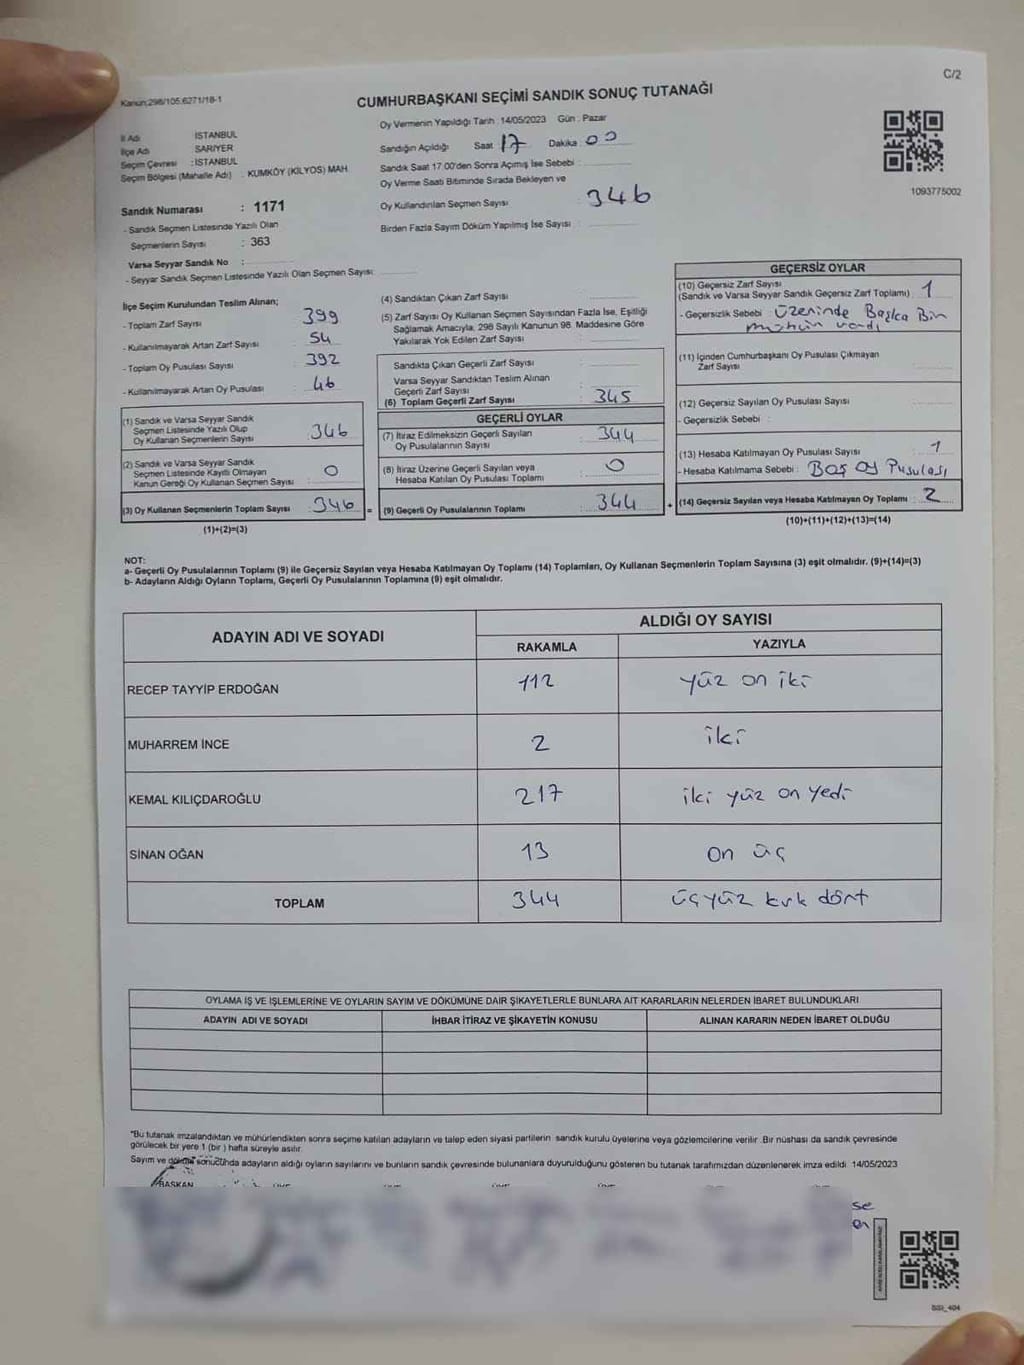 C/2
Kanun:298/105.6271/18-1
CUMHURBAŞKANI SEÇİMİ SANDIK SONUÇ TUTANAĞI
İl Adı : İSTANBUL
İlçe Adı : SARIYER
Seçim Çevresi : İSTANBUL
Seçim Bölgesi (Mahalle Adı) : KUMKÖY (KİLYOS) MAH.
Sandık Numarası : 1171
- Sandık Seçmen Listesinde Yazılı Olan
Seçmenlerin Sayısı : 363
Varsa Seyyar Sandık No :
- Seyyar Sandık Seçmen Listesinde Yazılı Olan Seçmen Sayısı:
Oy Vermenin Yapıldığı Tarih : 14/05/2023 Gün : Pazar
Sandığın Açıldığı Saat 17 Dakika 00
Sandık Saat 17:00'den Sonra Açılmış İse Sebebi :
Oy Verme Saati Bitiminde Sırada Bekleyen ve
Oy Kullandırılan Seçmen Sayısı : 346
Birden Fazla Sayım Döküm Yapılmış İse Sayısı :
1093775002
İlçe Seçim Kurulundan Teslim Alınan;
- Toplam Zarf Sayısı : 399
- Kullanılmayarak Artan Zarf Sayısı : 54
- Toplam Oy Pusulası Sayısı : 392
- Kullanılmayarak Artan Oy Pusulası : 46
(1) Sandık ve Varsa Seyyar Sandık
Seçmen Listesinde Yazılı Olup
Oy Kullanan Seçmenlerin Sayısı : 346
(2) Sandık ve Varsa Seyyar Sandık
Seçmen Listesinde Kayıtlı Olmayan
Kanun Gereği Oy Kullanan Seçmen Sayısı : 0
(3) Oy Kullanan Seçmenlerin Toplam Sayısı : 346 =
(1)+(2)=(3)
(4) Sandıktan Çıkan Zarf Sayısı :
(5) Zarf Sayısı Oy Kullanan Seçmen Sayısından Fazla İse, Eşitliği
Sağlamak Amacıyla, 298 Sayılı Kanunun 98. Maddesine Göre
Yakılarak Yok Edilen Zarf Sayısı :
Sandıkta Çıkan Geçerli Zarf Sayısı :
Varsa Seyyar Sandıktan Teslim Alınan
Geçerli Zarf Sayısı :
(6) Toplam Geçerli Zarf Sayısı : 345
GEÇERLİ OYLAR
(7) İtiraz Edilmeksizin Geçerli Sayılan
Oy Pusulalarının Sayısı : 344
(8) İtiraz Üzerine Geçerli Sayılan veya
Hesaba Katılan Oy Pusulası Toplamı : 0
(9) Geçerli Oy Pusulalarının Toplamı : 344 +
GEÇERSİZ OYLAR
(10) Geçersiz Zarf Sayısı
(Sandık ve Varsa Seyyar Sandık Geçersiz Zarf Toplamı) : 1
- Geçersizlik Sebebi : Üzerinde Başka Bir
mühür vardı
(11) İçinden Cumhurbaşkanı Oy Pusulası Çıkmayan
Zarf Sayısı :
(12) Geçersiz Sayılan Oy Pusulası Sayısı :
- Geçersizlik Sebebi :
(13) Hesaba Katılmayan Oy Pusulası Sayısı : 1
- Hesaba Katılmama Sebebi : Boş Oy Pusulası
(14) Geçersiz Sayılan veya Hesaba Katılmayan Oy Toplamı : 2
(10)+(11)+(12)+(13)=(14)
NOT:
a- Geçerli Oy Pusulalarının Toplamı (9) ile Geçersiz Sayılan veya Hesaba Katılmayan Oy Toplamı (14) Toplamları, Oy Kullanan Seçmenlerin Toplam Sayısına (3) eşit olmalıdır. (9)+(14)=(3)
b- Adayların Aldığı Oyların Toplamı, Geçerli Oy Pusulalarının Toplamına (9) eşit olmalıdır.
ADAYIN ADI VE SOYADI ALDIĞI OY SAYISI
RAKAMLA YAZIYLA
RECEP TAYYİP ERDOĞAN 112 yüz on iki
MUHARREM İNCE 2 iki
KEMAL KILIÇDAROĞLU 217 iki yüz on yedi
SİNAN OĞAN 13 on üç
TOPLAM 344 üçyüz kırk dört
OYLAMA İŞ VE İŞLEMLERİNE VE OYLARIN SAYIM VE DÖKÜMÜNE DAİR ŞİKAYETLERLE BUNLARA AİT KARARLARIN NELERDEN İBARET BULUNDUKLARI
ADAYIN ADI VE SOYADI İHBAR İTİRAZ VE ŞİKAYETİN KONUSU ALINAN KARARIN NEDEN İBARET OLDUĞU
*Bu tutanak imzalandıktan ve mühürlendikten sonra seçime katılan adayların ve talep eden siyasi partilerin sandık kurulu üyelerine veya gözlemcilerine verilir. Bir nüshası da sandık çevresinde
görülecek bir yere 1 (bir) hafta süreyle asılır.
Sayım ve döküm sonucunda adayların aldığı oyların sayılarını ve bunların sandık çevresinde bulunanlara duyurulduğunu gösteren bu tutanak tarafımızdan düzenlenerek imza edildi. 14/05/2023
BAŞKAN
se
en
SSI_404